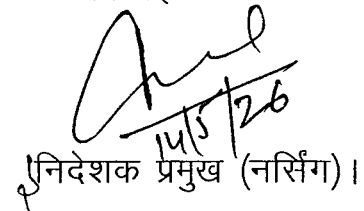 14/5/26
निदेशक प्रमुख (नर्सिंग)।